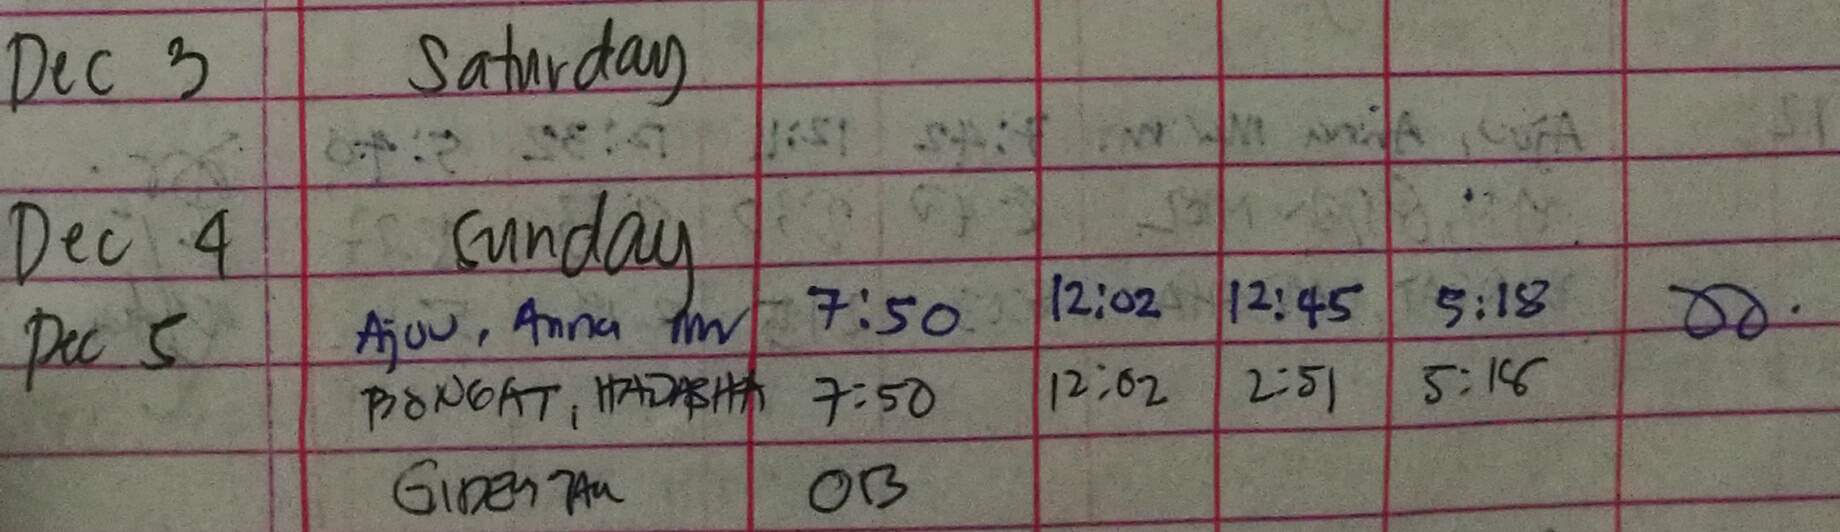 Dec 3 Saturday
Dec 4 Sunday
Dec 5 Ajuu, Anna 7:50 12:02 12:45 5:18
BONGAT, HADASHA 7:50 12:02 2:51 5:18
OB